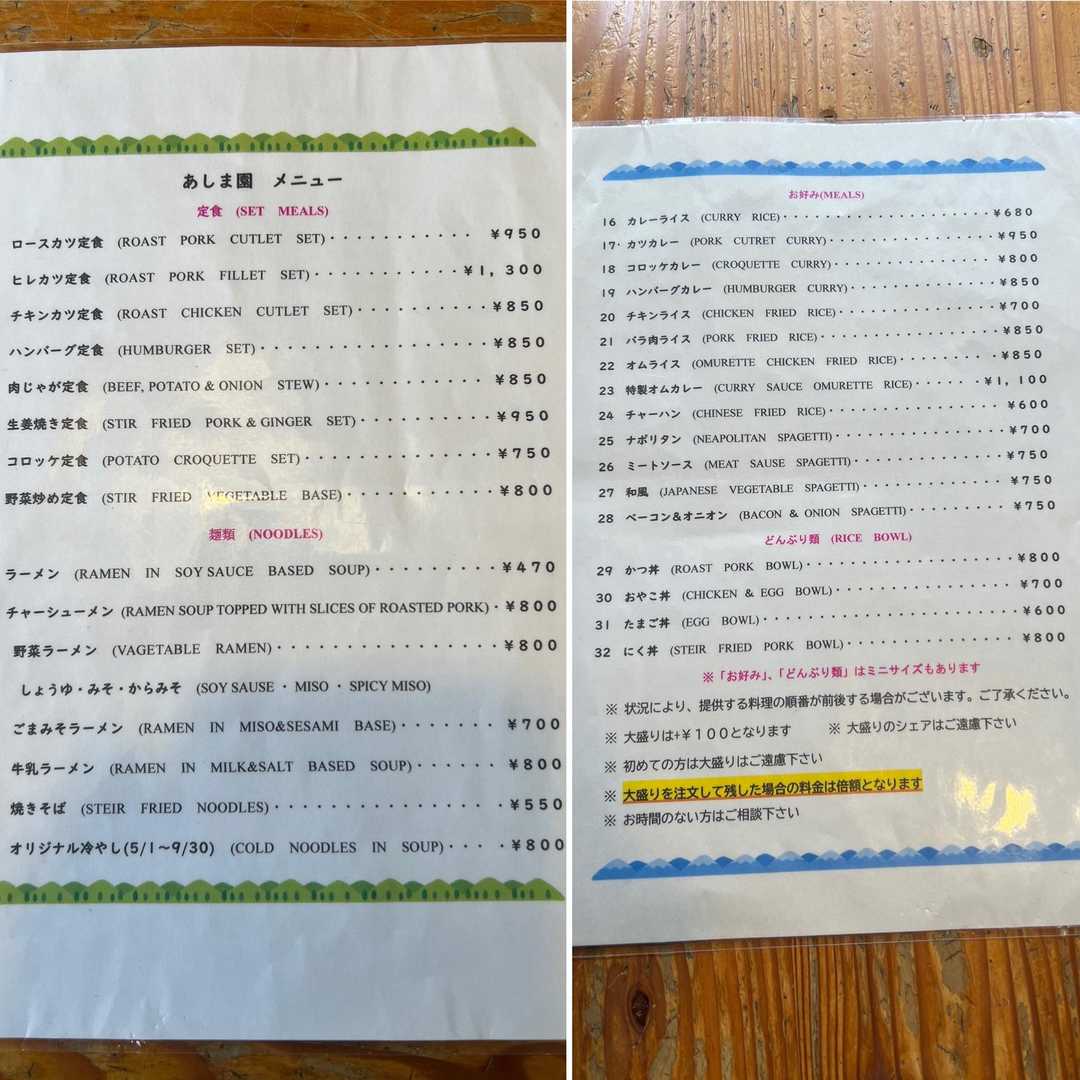 あしま園 メニュー
定食 (SET MEALS)
ロースカツ定食 (ROAST PORK CUTLET SET)・・・・・・・・・・・・ ¥950
ヒレカツ定食 (ROAST PORK FILLET SET)・・・・・・・・・・・・¥1,300
チキンカツ定食 (ROAST CHICKEN CUTLET SET)・・・・・・・・・・¥850
ハンバーグ定食 (HUMBURGER SET)・・・・・・・・・・・・・・・・¥850
肉じゃが定食 (BEEF, POTATO & ONION STEW)・・・・・・・・・・・・¥850
生姜焼き定食 (STIR FRIED PORK & GINGER SET)・・・・・・・・・・¥950
コロッケ定食 (POTATO CROQUETTE SET)・・・・・・・・・・・・・・¥750
野菜炒め定食 (STIR FRIED VEGETABLE BASE)・・・・・・・・・・・¥800
麺類 (NOODLES)
ラーメン (RAMEN IN SOY SAUCE BASED SOUP)・・・・・・・・・・¥470
チャーシューメン (RAMEN SOUP TOPPED WITH SLICES OF ROASTED PORK)・¥800
野菜ラーメン (VAGETABLE RAMEN)・・・・・・・・・・・・・・・・・¥800
しょうゆ・みそ・からみそ (SOY SAUSE ・ MISO ・ SPICY MISO)
ごまみそラーメン (RAMEN IN MISO&SESAMI BASE)・・・・・・・・¥700
牛乳ラーメン (RAMEN IN MILK&SALT BASED SOUP)・・・・・・・¥800
焼きそば (STEIR FRIED NOODLES)・・・・・・・・・・・・・・・・・¥550
オリジナル冷やし(5/1~9/30) (COLD NOODLES IN SOUP)・・・・・¥800
お好み(MEALS)
16 カレーライス (CURRY RICE)・・・・・・・・・・・・・・・・・・・・・¥680
17・ カツカレー (PORK CUTRET CURRY)・・・・・・・・・・・・・・・・・¥950
18 コロッケカレー (CROQUETTE CURRY)・・・・・・・・・・・・・・・・・¥800
19 ハンバーグカレー (HUMBURGER CURRY)・・・・・・・・・・・・・・・¥850
20 チキンライス (CHICKEN FRIED RICE)・・・・・・・・・・・・・・・・¥700
21 バラ肉ライス (PORK FRIED RICE)・・・・・・・・・・・・・・・・・・¥850
22 オムライス (OMURETTE CHICKEN FRIED RICE)・・・・・・・・・・¥850
23 特製オムカレー (CURRY SAUCE OMURETTE RICE)・・・・・・・¥1,100
24 チャーハン (CHINESE FRIED RICE)・・・・・・・・・・・・・・・・・・¥600
25 ナポリタン (NEAPOLITAN SPAGETTI)・・・・・・・・・・・・・・・・・¥700
26 ミートソース (MEAT SAUSE SPAGETTI)・・・・・・・・・・・・・・・¥750
27 和風 (JAPANESE VEGETABLE SPAGETTI)・・・・・・・・・・・・・・¥750
28 ベーコン&オニオン (BACON & ONION SPAGETTI)・・・・・・・・・・¥750
どんぶり類 (RICE BOWL)
29 かつ丼 (ROAST PORK BOWL)・・・・・・・・・・・・・・・・・・・・・¥800
30 おやこ丼 (CHICKEN & EGG BOWL)・・・・・・・・・・・・・・・・・・¥700
31 たまご丼 (EGG BOWL)・・・・・・・・・・・・・・・・・・・・・・・・・¥600
32 にく丼 (STEIR FRIED PORK BOWL)・・・・・・・・・・・・・・・・・¥800
※「お好み」、「どんぶり類」はミニサイズもあります
※ 状況により、提供する料理の順番が前後する場合がございます。ご了承ください。
※ 大盛りは+¥100となります ※ 大盛りのシェアはご遠慮下さい
※ 初めての方は大盛りはご遠慮下さい
※ 大盛りを注文して残した場合の料金は倍額となります
※ お時間のない方はご相談下さい